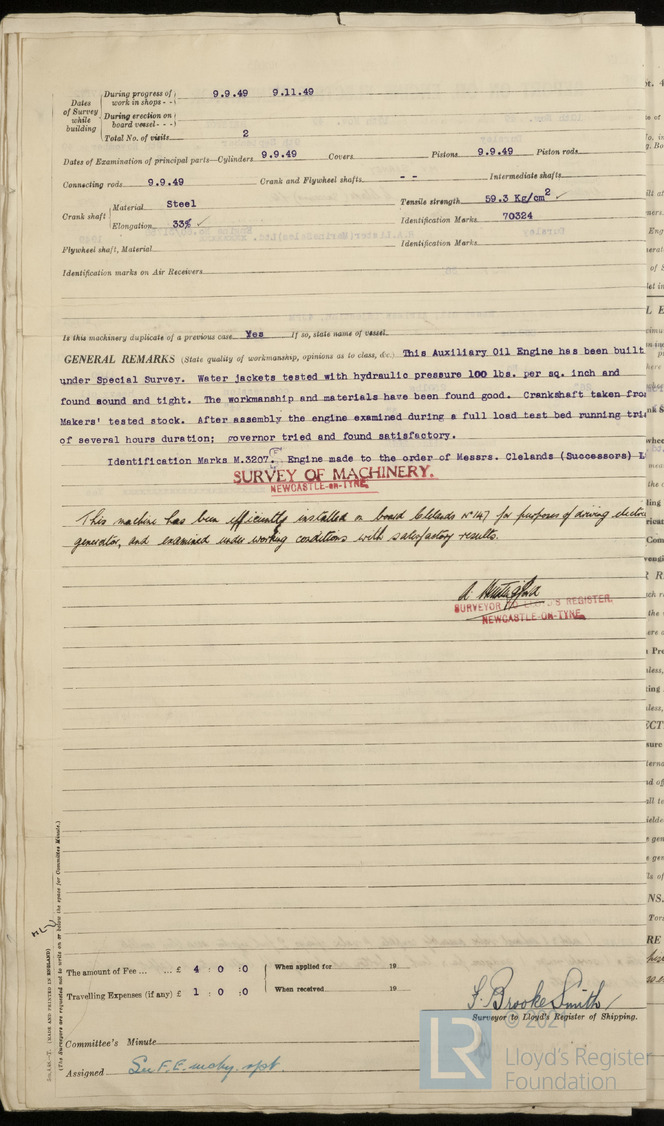 Dates of Survey while building
During progress of work in shops - - 9.9.49 9.11.49
During erection on board vessel - - -
Total No. of visits 2
Dates of Examination of principal parts—Cylinders 9.9.49 Covers Pistons 9.9.49 Piston rods
Connecting rods 9.9.49 Crank and Flywheel shafts - - Intermediate shafts
Crank shaft Material Steel Tensile strength 59.3 Kg/cm2 ✓
Elongation 33% ✓ Identification Marks 70324
Flywheel shaft, Material Identification Marks
Identification marks on Air Receivers
Is this machinery duplicate of a previous case Yes If so, state name of vessel
GENERAL REMARKS (State quality of workmanship, opinions as to class, &c.) This Auxiliary Oil Engine has been built
under Special Survey. Water jackets tested with hydraulic pressure 100 lbs. per sq. inch and
found sound and tight. The workmanship and materials have been found good. Crankshaft taken from
Makers' tested stock. After assembly the engine examined during a full load test bed running
of several hours duration; governor tried and found satisfactory.
Identification Marks M.3207. Engine made to the order of Messrs. Clelands (Successors) L
SURVEY OF MACHINERY.
NEWCASTLE-ON-TYNE.
This machine has been efficiently installed on board Clelands No 147 for purposes of driving
generator, and examined under working conditions with satisfactory results.
SURVEYOR TO LLOYD'S REGISTER.
NEWCASTLE-ON-TYNE.
(MADE AND PRINTED IN ENGLAND)
(The Surveyors are requested not to write on or below the space for Committee Minute.)
The amount of Fee ... ... £ 4 : 0 : 0 When applied for 19
Travelling Expenses (if any) £ 1 : 0 : 0 When received 19
F. Brooke Smith
Surveyor to Lloyd's Register of Shipping.
© 2021
Committee's Minute
Assigned See F.E. mchy. rpt.
LR
Lloyd's Register
Foundation